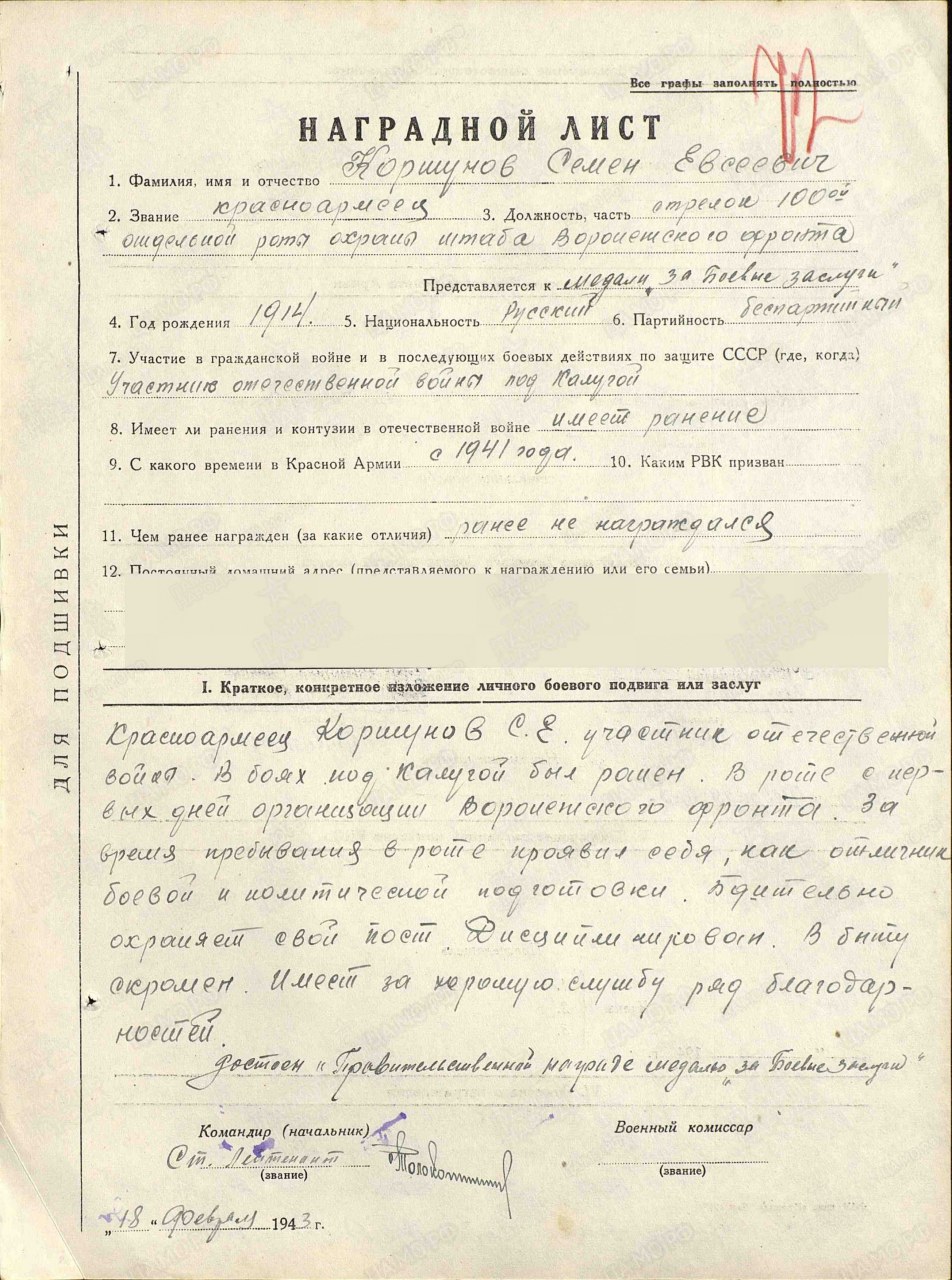 Все графы заполнять полностью
НАГРАДНОЙ ЛИСТ
1. Фамилия, имя и отчество Коршунов Семен Евсеевич
2. Звание красноармеец 3. Должность, часть стрелок 100ой
отдельной роты охраны штаба Воронежского фронта
Представляется к медали „за Боевые заслуги"
4. Год рождения 1914. 5. Национальность Русский 6. Партийность беспартийный
7. Участие в гражданской войне и в последующих боевых действиях по защите СССР (где, когда)
Участник отечественной войны под Калугой
8. Имеет ли ранения и контузии в отечественной войне имеет ранение
9. С какого времени в Красной Армии с 1941 года. 10. Каким РВК призван
11. Чем ранее награжден (за какие отличия) ранее не награждался
12. Постоянный домашний адрес (представляемого к награждению или его семьи)
ДЛЯ ПОДШИВКИ
I. Краткое, конкретное изложение личного боевого подвига или заслуг
Красноармеец Коршунов С.Е. участник отечественной
войны. В боях под Калугой был ранен. В роте с пер-
вых дней организации Воронежского фронта. За
время пребывания в роте проявил себя, как отличник
боевой и политической подготовки. Бдительно
охраняет свой пост. Дисциплинирован. В быту
скромен. Имеет за хорошую службу ряд благодар-
ностей.
Достоен "Правительственной награде медалью „за Боевые заслуги"
Командир (начальник) Военный комиссар
Ст. Лейтенант
(звание) (звание)
„18" Февраля 1943 г.